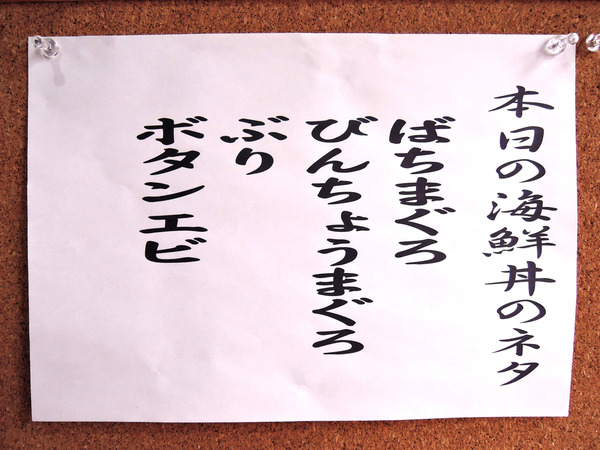 本日の海鮮丼のネタ
ばちまぐろ
びんちょうまぐろ
ぶり
ボタンエビ